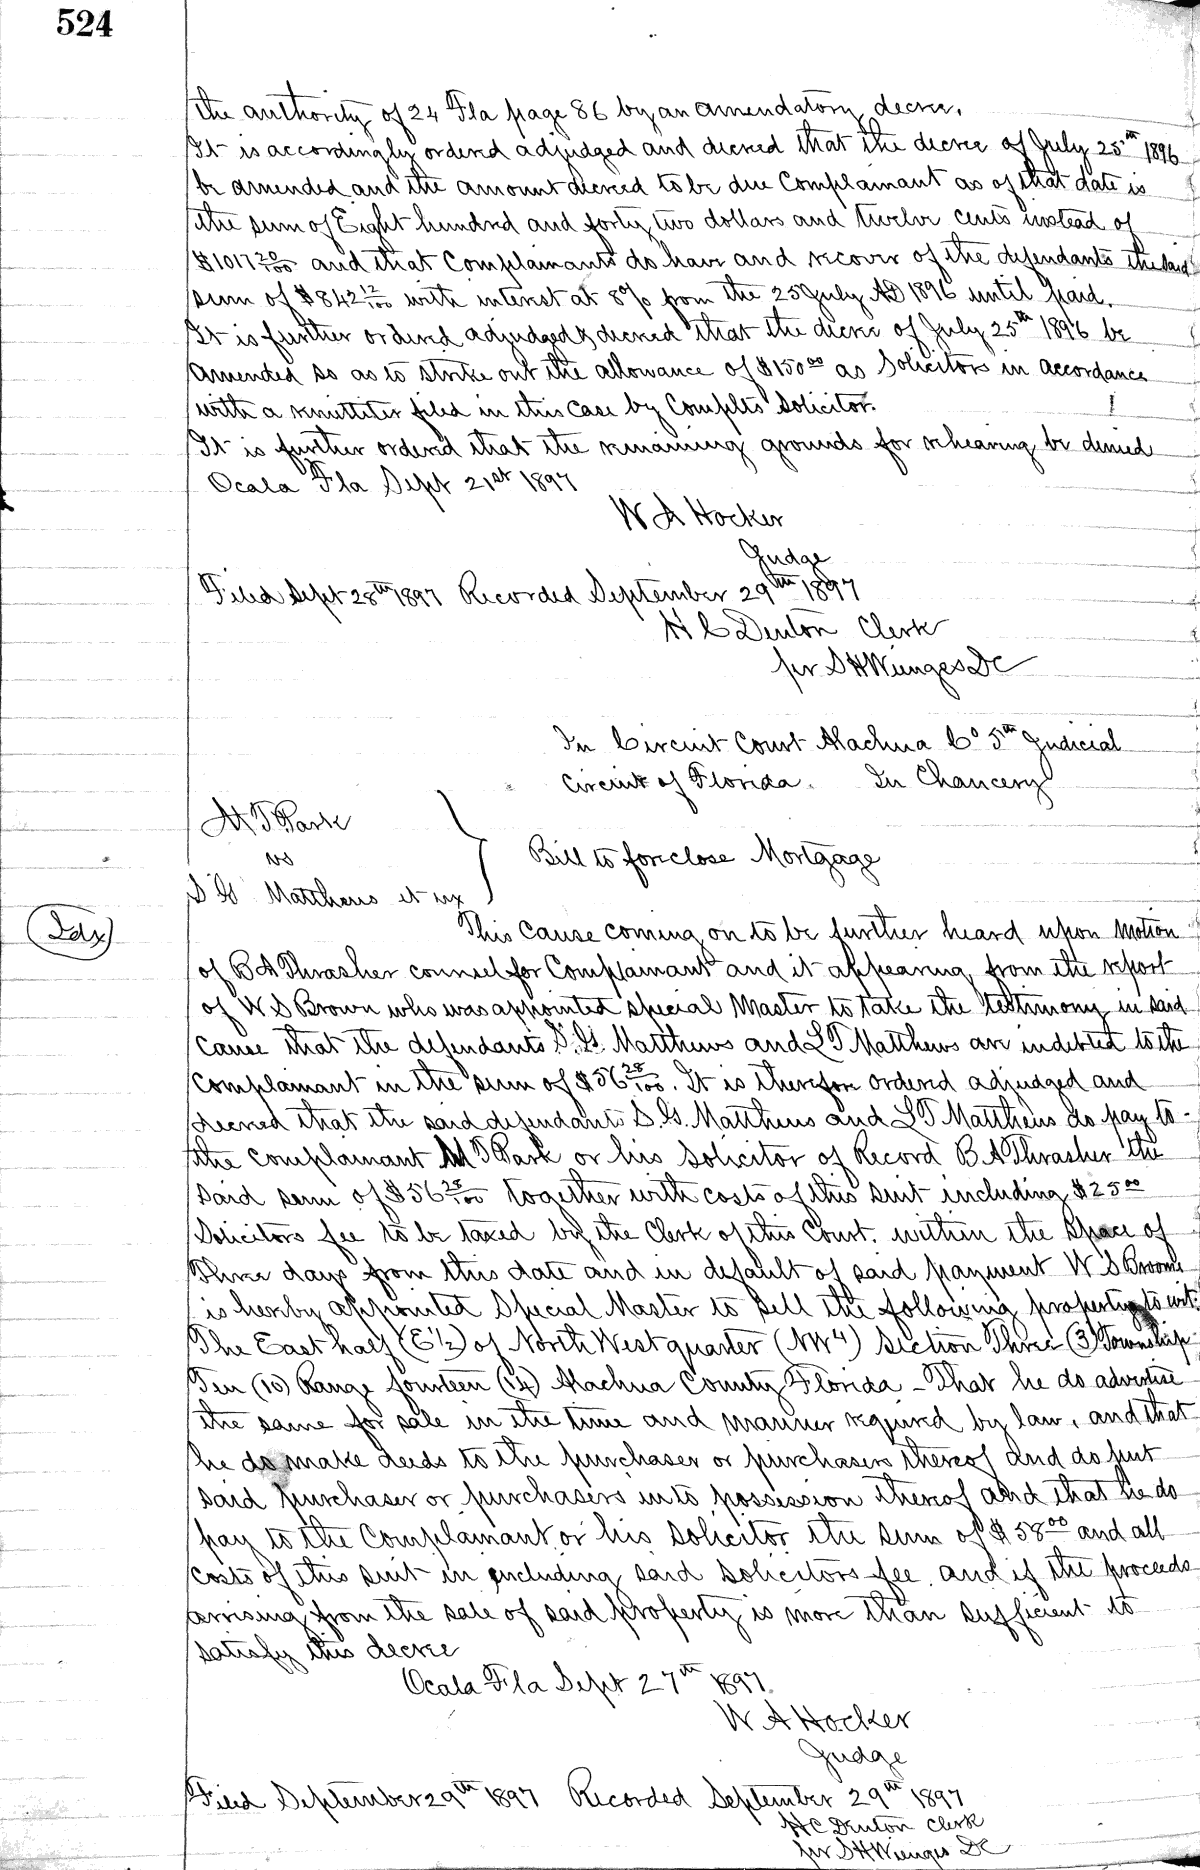 524
the authority of 24 Fla page 86 by an amendatory decree.
It is accordingly ordered adjudged and decreed that the decree of July 25th 1896
be amended and the amount decreed to be due Complainant as of that date is
the sum of Eight hundred and forty two dollars and twelve cents instead of
$1017 20/100 and that Complainants do have and recover of the defendants the said
sum of $842 12/100 with interest at 8% from the 25 July AD 1896 until paid.
It is further ordered adjudged & decreed that the decree of July 25th 1896 be
amended so as to strike out the allowance of $150 00 as Solicitors in accordance
with a remittiter filed in this case by Complts Solicitor.
It is further ordered that the remaining grounds for rehearing be denied
Ocala Fla Sept 21st 1897
W A Hocker
Judge
Filed Sept 28th 1897 Recorded September 29th 1897
H C Denton Clerk
per S H Wienges DC
In Circuit Court Alachua Co 5th Judicial
Circuit of Florida. In Chancery
M T Park
vs
S G Matthews et ux
Bill to foreclose Mortgage
Idx
This cause coming on to be further heard upon motion
of B A Thrasher counsel for Complainant and it appearing from the report
of W S Brown who was appointed special Master to take the testimony in said
cause that the defendants S. G. Matthews and L T Matthews are indebted to the
complainant in the sum of $56 28/100. It is therefore ordered adjudged and
decreed that the said defendants S. G. Matthews and L T Matthews do pay to
the complainant M T Park or his solicitor of Record B A Thrasher the
said sum of $56 28/100 together with costs of this suit including $25 00
Solicitors fee to be taxed by the Clerk of this Court. within the space of
Three days from this date and in default of said payment W S Broome
is hereby appointed Special Master to sell the following property to wit:
The East half (E 1/2) of North West quarter (NW 4) Section Three (3) Township
Ten (10) Range fourteen (14) Alachua County Florida - That he do advertise
the same for sale in the time and manner required by law, and that
he do make deeds to the purchaser or purchasers thereof and do put
said purchaser or purchasers into possession thereof and that he do
pay to the Complainant or his solicitor the sum of $58 00 and all
costs of this suit in including said solicitors fee and if the proceeds
arrising from the sale of said property is more than sufficient to
satisfy this decree
Ocala Fla Sept 27th 1897.
W A Hocker
Judge
Filed September 29th 1897 Recorded September 29th 1897
H C Denton Clerk
per S H Wienges DC